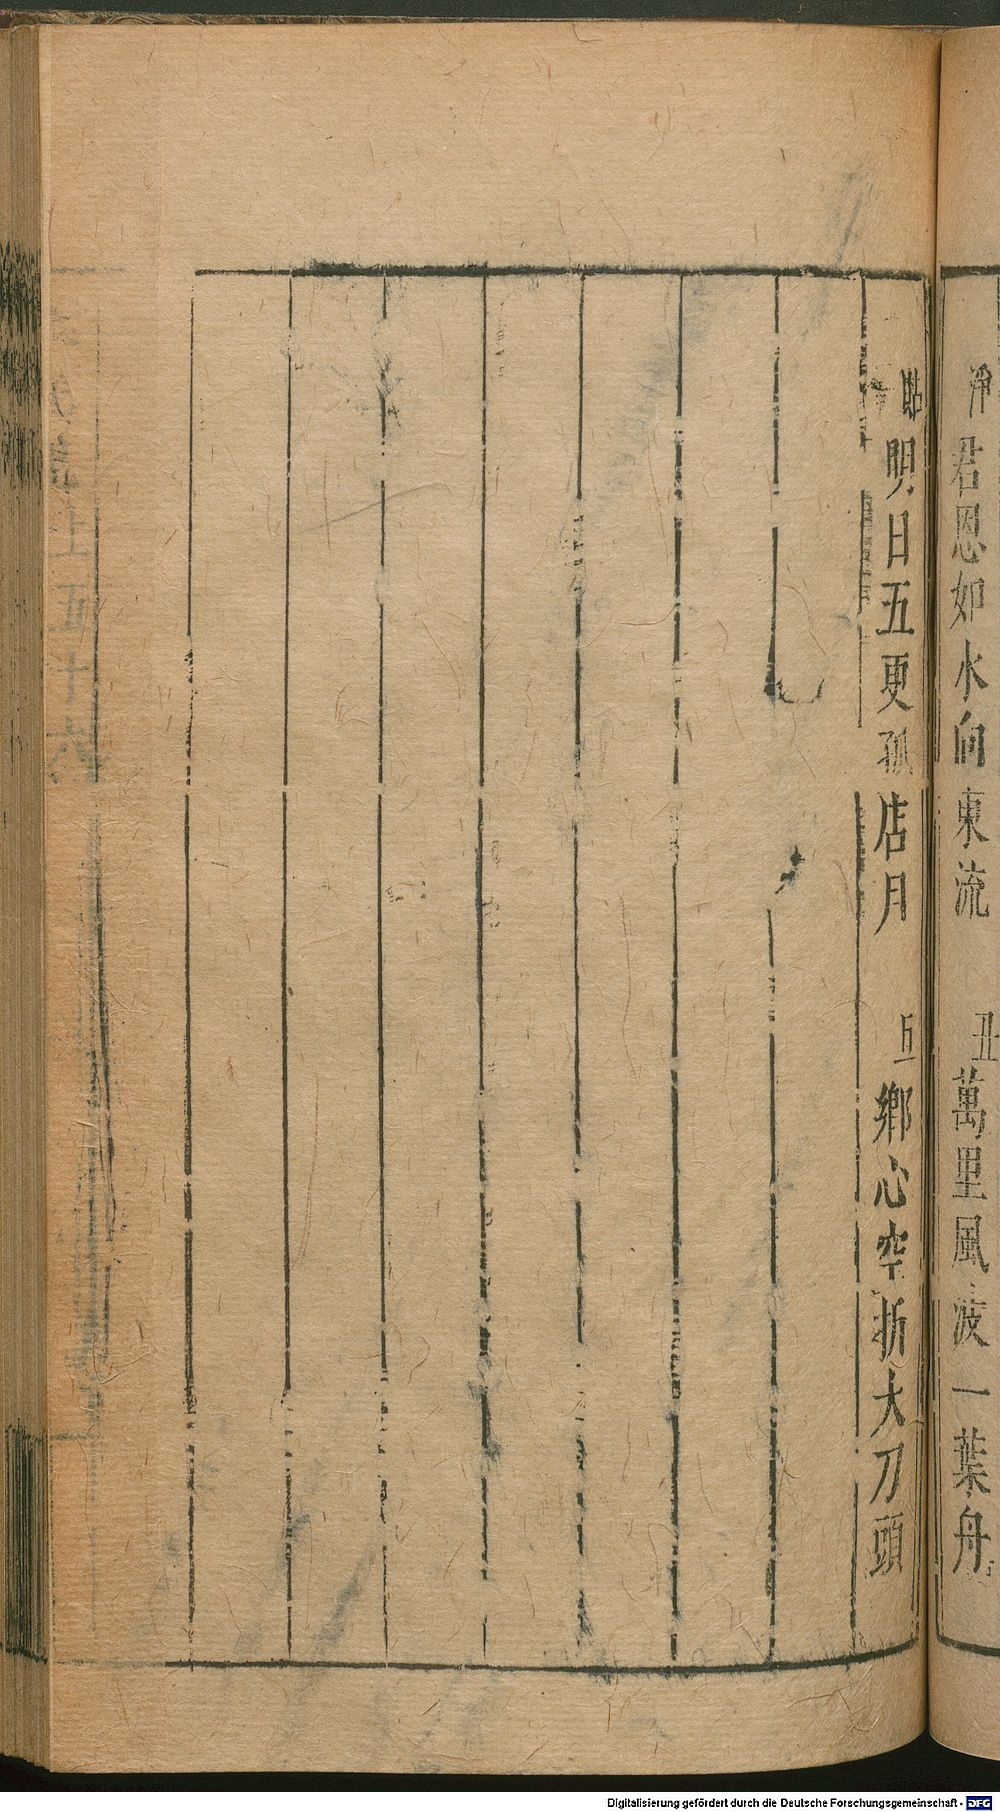 淨 君恩如水向東流 丑 萬里風波一葉舟
貼 明日五更孤店月 丘 鄉心空折大刀頭
Digitalisierung gefördert durch die Deutsche Forschungsgemeinschaft - DFG